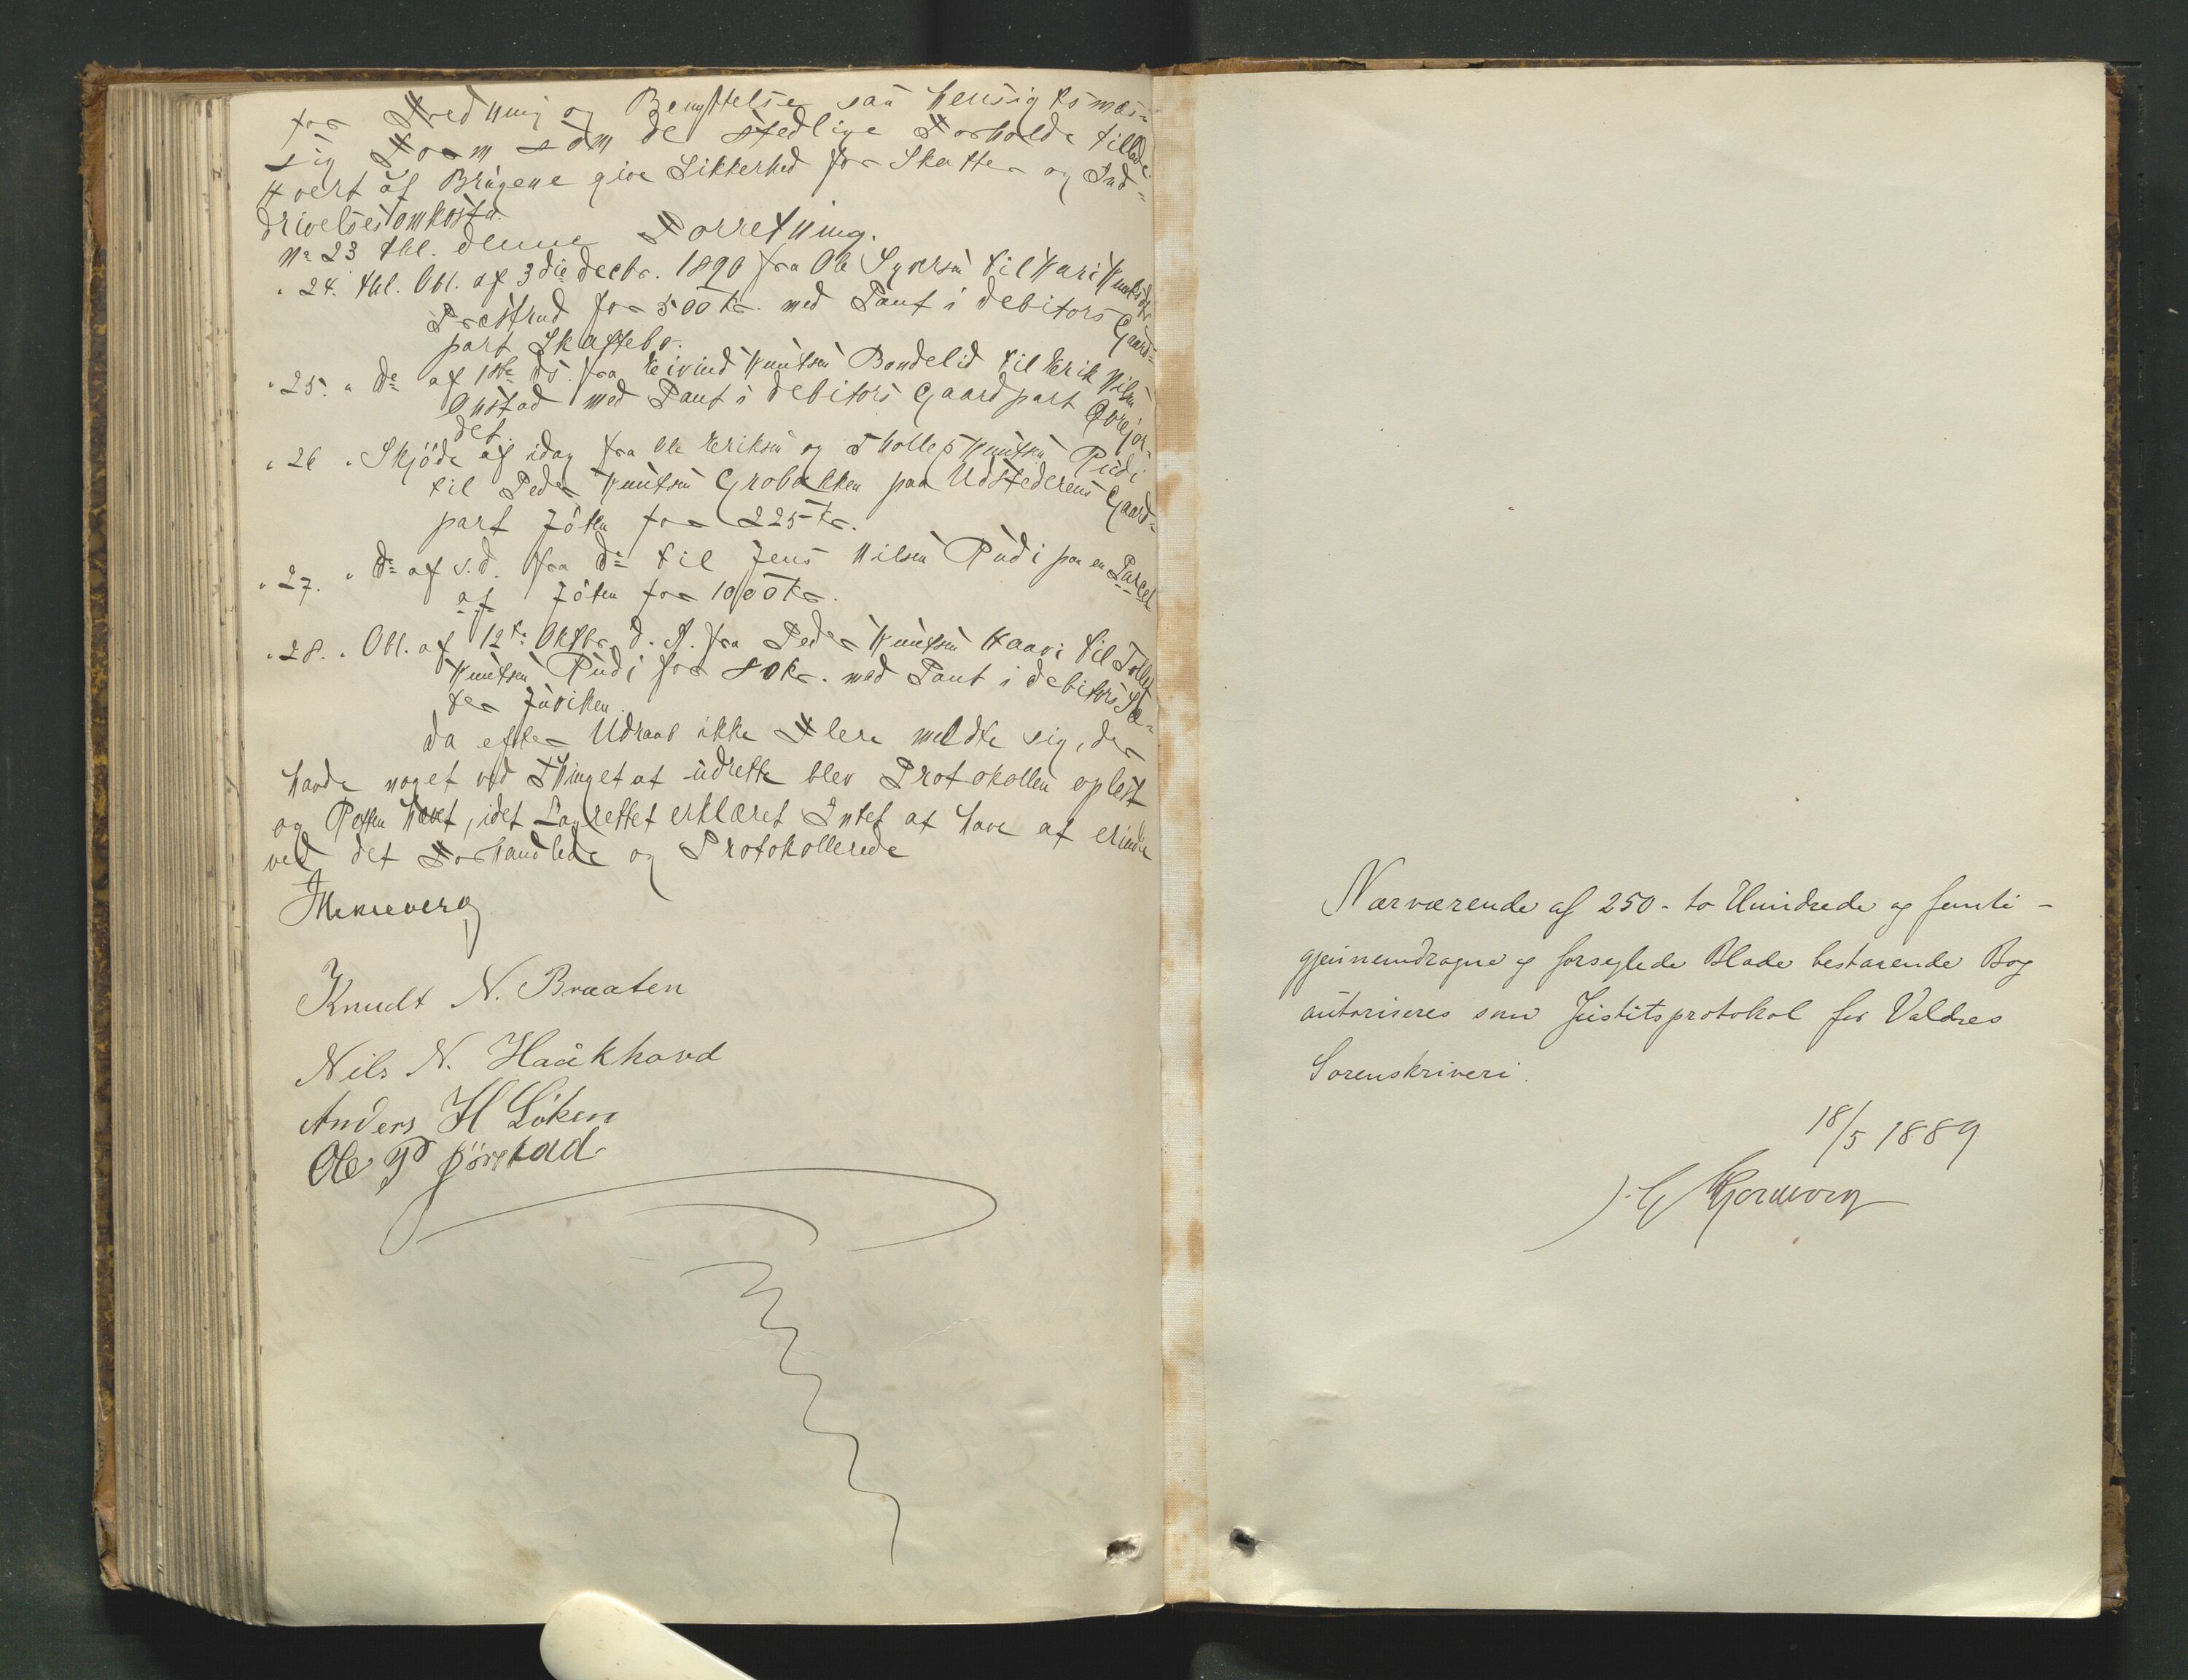 for Fredning og Benyttelse saa hensigtsmæs=
sig Form som de stedlige Forholde tillade
Hvert af Brugene give Sikkerhed for Skatter og Ind=
drivelsesomkostn.
No 23 thl. denne Forretning.
" 24. thl. Obl. af 3die Decbr. 1890 fra Ole til Kari Knutsdtr
Præstrud for 500 Kr. med Pant i Debitors Gaard=
part Skattebo.
" 25. " Do af 1ste ds. fra Eivind Knutsen Bondelid til Erik Nilsen
Onstad med Pant i Debitors Gaardpart
det.
" 26 " Skjöde af idag fra Ole Eriksen og Thollef Knutsen Rudi
til Peder Knutsen Grobakken paa Udstederens Gaard=
part Jöten for 225 Kr.
" 27. " Do af s.d. fra Do til Jens Nilsen Rudi paa en Parcel
af Jöten for 1000 Kr.
" 28. " Obl. af 12te Oktbr. d. A. fra Peder Knutsen Haavi til Tollef
Knutsen Rudi for 80 Kr. med Pant i Debitors Sæ=
ter Juviken.
Da efter Udraab ikke Flere meldte sig, der
havde noget ved Thinget at udrette blev Protokollen oplæst
og Retten hævet, idet Lagrettet erklæret Intet at have at erindre
ved det Forhandlede og Protokollerede
Knudt N. Braaten
Nils N. Haåkhovd
Anders H Löken
Ole P Jörstad
Nærværende af 250 - to Hundrede og femti -
gjennemdragne og forseglede Blade bestaaende Bog
autoriseres som Justitsprotokol for Valdres
Sorenskriveri.
18/5 1889